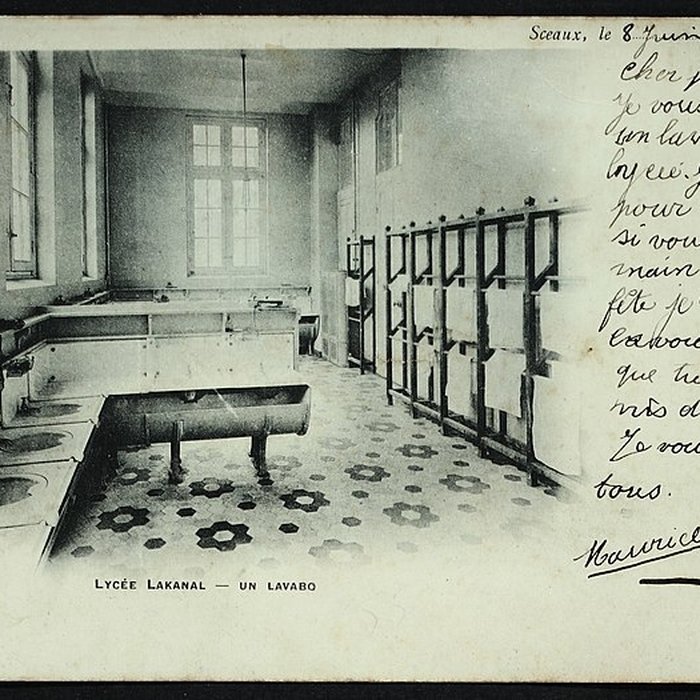 Sceaux, le 8 Juin
Cher
Je vous
un lav
lycée.
pour
si vou
main
fête je
envoie
que
mis d
Je vou
tous.
Maurice
LYCÉE LAKANAL — UN LAVABO